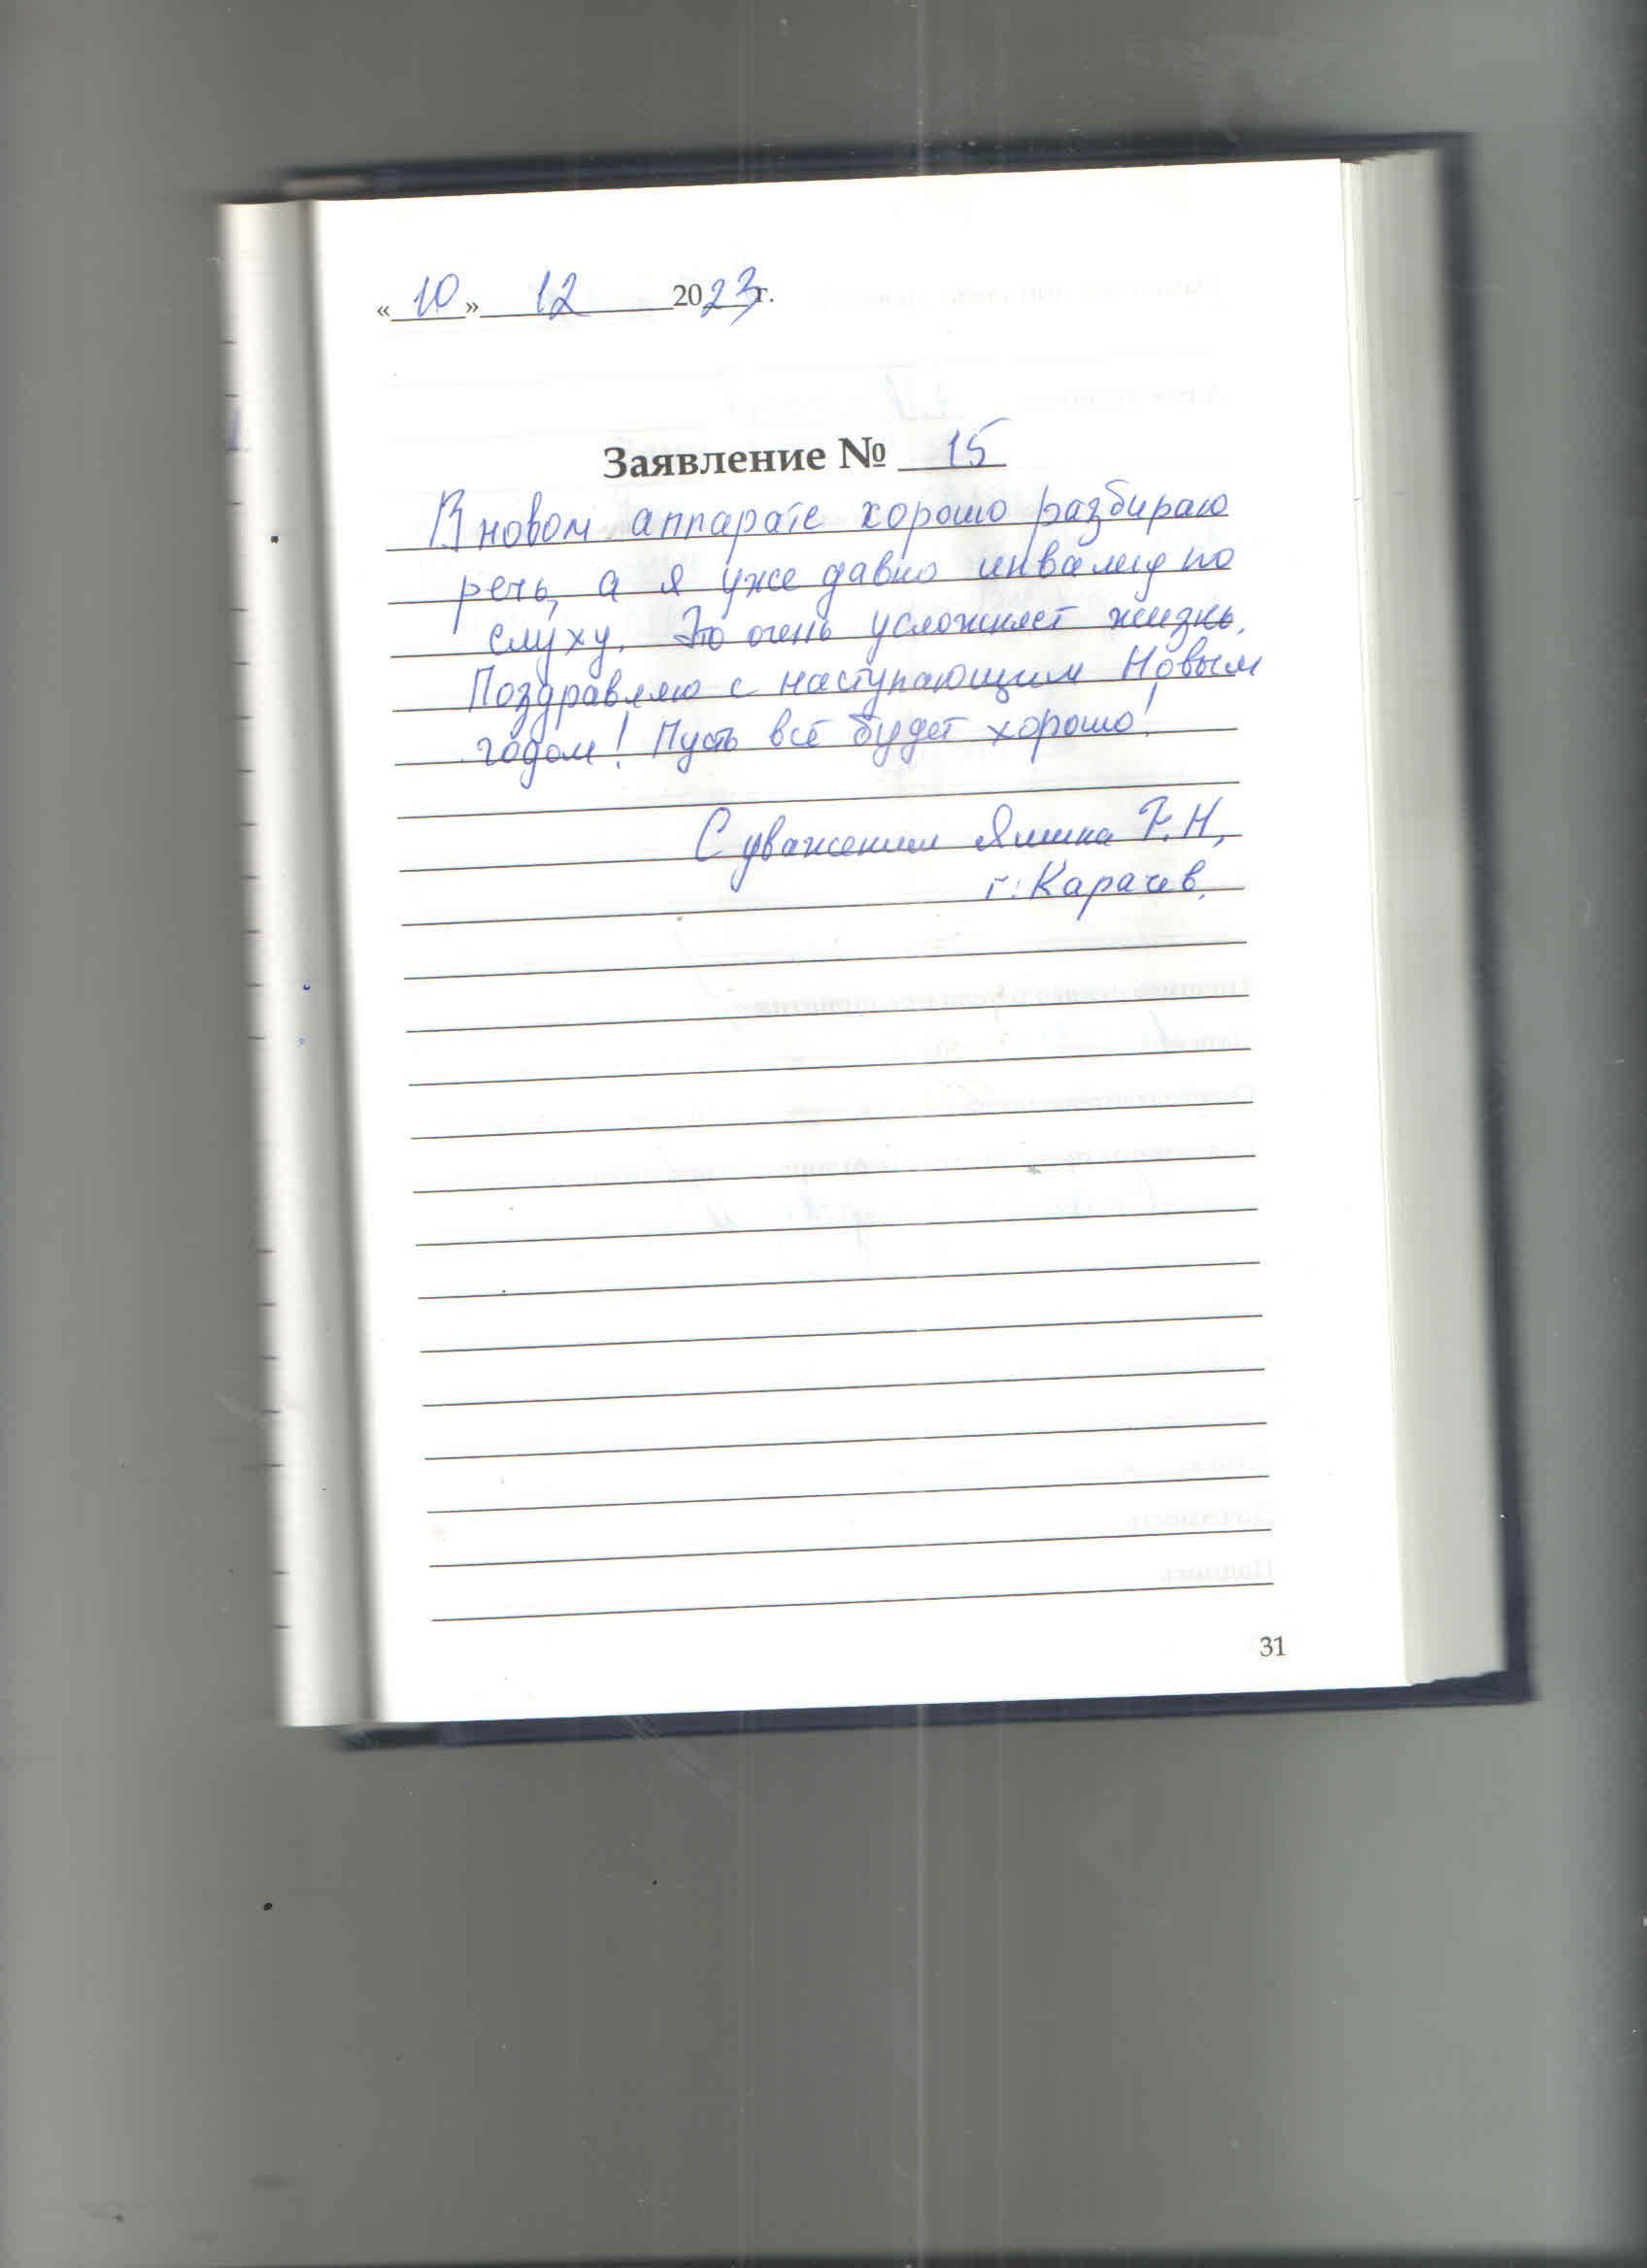 «10» 12 2023г.
Заявление № 15
В новом аппарате хорошо разбираю
речь, а я уже давно инвалид по
слуху. Это очень усложняет жизнь.
Поздравляю с наступающим Новым
годом! Пусть всё будет хорошо!
С уважением Н,
г. Карачев.
31